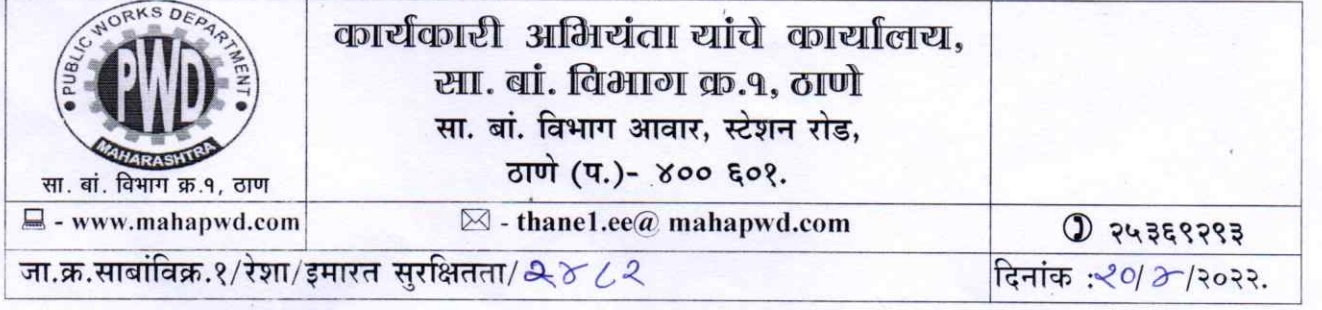 PUBLIC WORKS DEPARTMENT
PWD
MAHARASHTRA
सा. बां. विभाग क्र.१, ठाण
कार्यकारी अभियंता यांचे कार्यालय,
सा. बां. विभाग क्र.१, ठाणे
सा. बां. विभाग आवार, स्टेशन रोड,
ठाणे (प.)- ४०० ६०१.
- www.mahapwd.com
- thane1.ee@ mahapwd.com
२५३६९२९३
जा.क्र.साबांविक्र.१/रेशा/इमारत सुरक्षितता/२४८२
दिनांक :२०/४/२०२२.